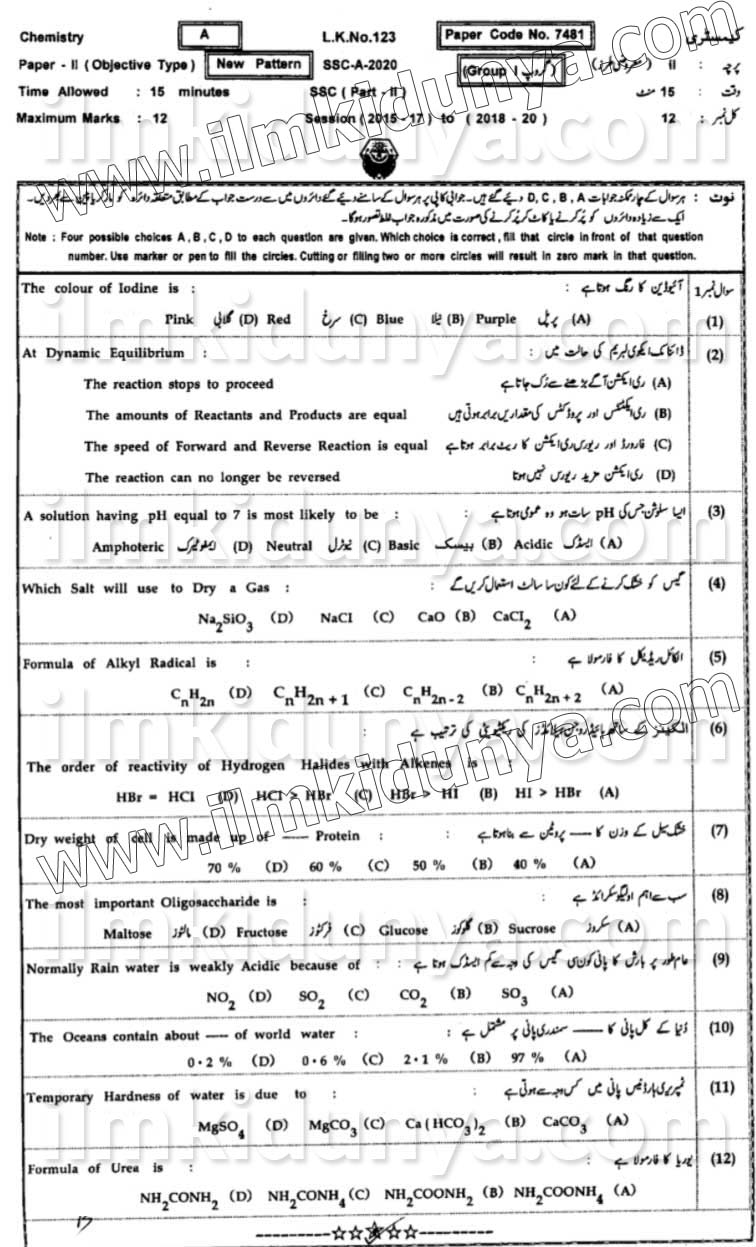 Chemistry A L.K.No.123 Paper Code No. 7481 کیمسٹری
Paper - II ( Objective Type ) New Pattern SSC-A-2020 (Group I گروپ) پرچہ : II (معروضی طرز)
Time Allowed : 15 minutes SSC ( Part - II ) وقت : 15 منٹ
Maximum Marks : 12 Session ( 2015 - 17 ) to ( 2018 - 20 ) کل نمبر : 12
نوٹ : ہر سوال کے چار ممکنہ جوابات D , C , B , A دیئے گئے ہیں۔ جوابی کاپی پر ہر سوال کے سامنے دیئے گئے دائروں میں سے درست جواب کے مطابق متعلقہ دائرہ کو مارکر یا پین سے بھر دیں۔
ایک سے زیادہ دائروں کو پُر کرنے یا کاٹ کر پُر کرنے کی صورت میں مذکورہ جواب غلط تصور ہوگا۔
Note : Four possible choices A , B , C , D to each question are given. Which choice is correct , fill that circle in front of that question
number. Use marker or pen to fill the circles. Cutting or filling two or more circles will result in zero mark in that question.
The colour of Iodine is : آئیوڈین کا رنگ ہوتا ہے : سوال نمبر 1
Pink گلابی (D) Red سرخ (C) Blue نیلا (B) Purple پرپل (A) (1)
At Dynamic Equilibrium : ڈائنامک ایکوی لبریم کی حالت میں : (2)
The reaction stops to proceed ری ایکشن آگے بڑھنے سے رُک جاتا ہے (A)
The amounts of Reactants and Products are equal ری ایکٹنٹس اور پروڈکٹس کی مقداریں برابر ہوتی ہیں (B)
The speed of Forward and Reverse Reaction is equal فارورڈ اور ریورس ری ایکشن کا ریٹ برابر ہوتا ہے (C)
The reaction can no longer be reversed ری ایکشن مزید ریورس نہیں ہوتا (D)
A solution having pH equal to 7 is most likely to be : ایسا سلوشن جس کی pH سات ہو وہ عموماً ہوتا ہے : (3)
Amphoteric ایمفوٹیرک (D) Neutral نیوٹرل (C) Basic بیسک (B) Acidic ایسڈک (A)
Which Salt will use to Dry a Gas : گیس کو خشک کرنے کے لئے کون سا سالٹ استعمال کریں گے : (4)
Na₂SiO₃ (D) NaCl (C) CaO (B) CaCl₂ (A)
Formula of Alkyl Radical is : الکائل ریڈیکل کا فارمولا ہے : (5)
CₙH₂ₙ (D) CₙH₂ₙ₊₁ (C) CₙH₂ₙ₋₂ (B) CₙH₂ₙ₊₂ (A)
الکینز کے ساتھ ہائیڈروجن ہیلائڈز کی ری ایکٹیویٹی کی ترتیب ہے (6)
The order of reactivity of Hydrogen Halides with Alkenes is :
HBr = HCl (D) HCl > HBr (C) HBr > HI (B) HI > HBr (A)
Dry weight of cell is made up of —— Protein : خشک سیل کے وزن کا —— پروٹین سے بنا ہوتا ہے : (7)
70 % (D) 60 % (C) 50 % (B) 40 % (A)
The most important Oligosaccharide is : سب سے اہم اولیگوسکرائڈ ہے : (8)
Maltose مالٹوز (D) Fructose فرکٹوز (C) Glucose گلوکوز (B) Sucrose سکروز (A)
Normally Rain water is weakly Acidic because of : عام طور پر بارش کا پانی کون سی گیس کی وجہ سے کم ایسڈک ہوتا ہے : (9)
NO₂ (D) SO₂ (C) CO₂ (B) SO₃ (A)
The Oceans contain about —— of world water : دُنیا کے کل پانی کا —— سمندری پانی پر مشتمل ہے : (10)
0·2 % (D) 0·6 % (C) 2·1 % (B) 97 % (A)
Temporary Hardness of water is due to : ٹمپریری ہارڈنیس پانی میں کس وجہ سے ہوتی ہے (11)
MgSO₄ (D) MgCO₃ (C) Ca(HCO₃)₂ (B) CaCO₃ (A)
Formula of Urea is : یوریا کا فارمولا ہے : (12)
NH₂CONH₂ (D) NH₂CONH₄ (C) NH₂COONH₂ (B) NH₂COONH₄ (A)
www.ilmkidunya.com
www.ilmkidunya.com
ilmkidunya.com
ilmkidunya.com
ilmkidunya.com
ilmkidunya.com
ilmkidunya.com
ilmkidunya.com